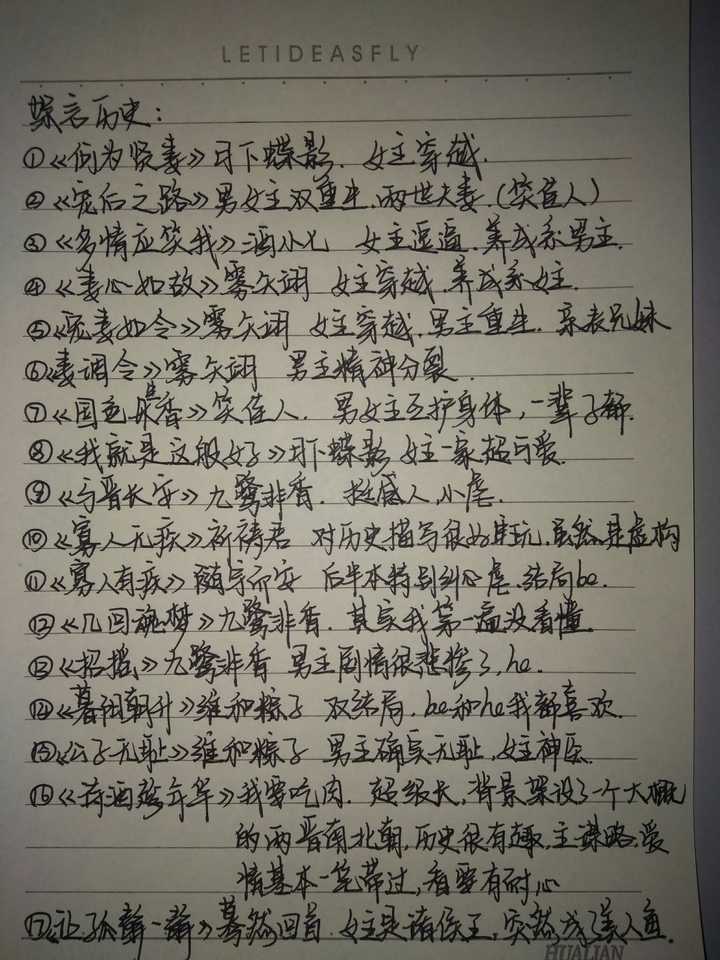 LETIDEASFLY
架言历史:
①《何为贤妻》月下蝶影. 女主穿越.
②《宠后之路》男女主双重生.两世夫妻.(笑佳人)
③《多情应笑我》酒小七 女主逗逼.养成系男主.
④《妻心如故》雾矢翊 女主穿越.养成系女主.
⑤《宠妻如令》雾矢翊 女主穿越.男主重生.亲表兄妹
⑥《妻调令》雾矢翊 男主精神分裂.
⑦《国色生香》笑佳人. 男女主互护身体,一辈子都.
⑧《我就是这般好》月下蝶影 女主一家超可爱.
⑨《与晋长安》九鹭非香. 挺感人,小虐.
⑩《寡人无疾》祈祷君 对历史描写很好 .虽然是虚构
⑪《寡人有疾》随宇而安 后半本特别纠心虐.结局be.
⑫《几回魂梦》九鹭非香. 其实我第一遍没看懂.
⑬《招摇》九鹭非香 男主剧情很悲惨了,he.
⑭《暮阳朝升》维和粽子 双结局.be和he我都喜欢.
⑮《公子无耻》维和粽子 男主确实无耻,女主神医.
⑯《荷酒 年华》我要吃肉. 超级长,背景架设了一个大概
的两晋南北朝,历史很有趣,主谋略.爱
情基本一笔带过,看要有耐心
⑰《让孤静一静》蓦然回首. 女主是诸侯王,突然成了美人鱼.
HUALIAN